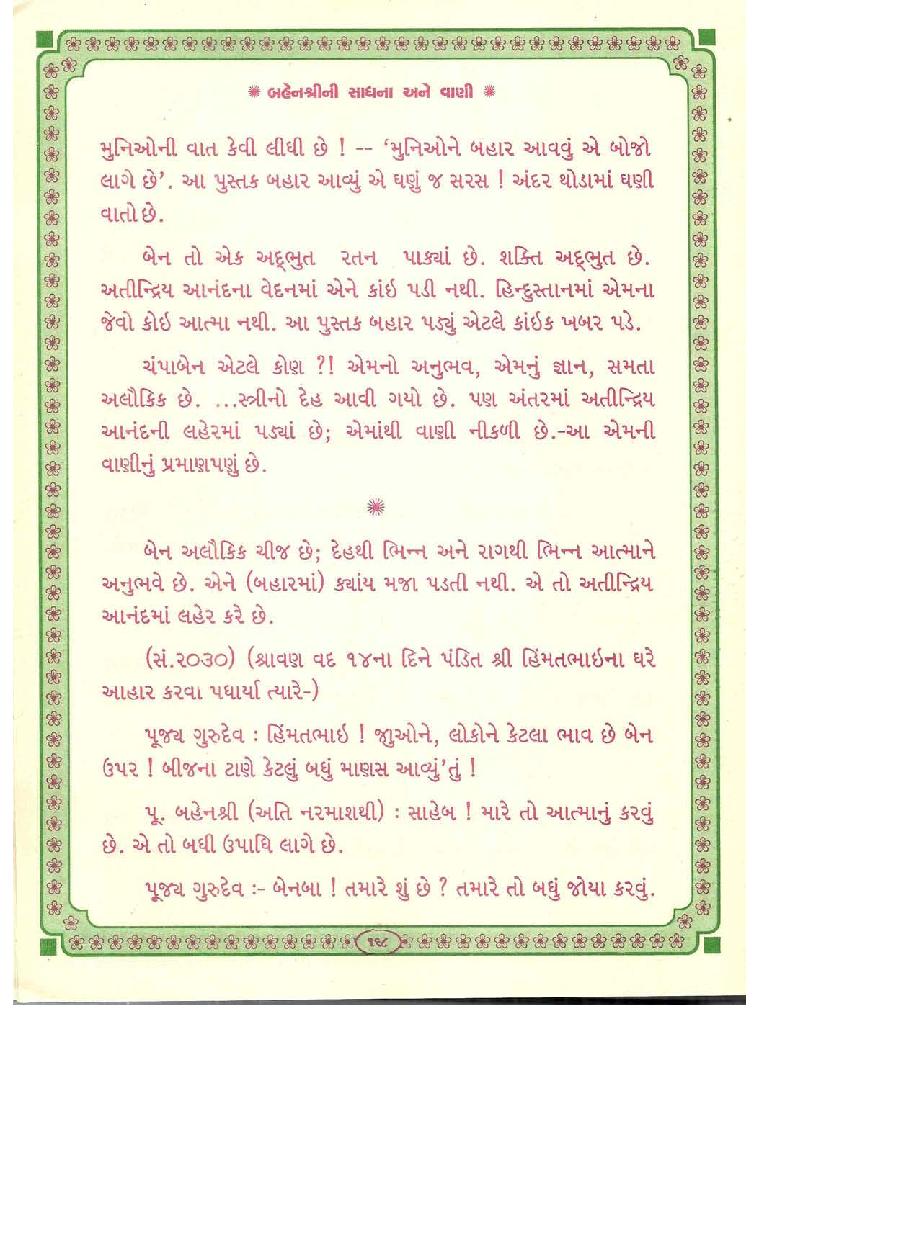 ✺ બહેનશ્રીની સાધના અને વાણી ✺
મુનિઓની વાત કેવી લીધી છે ! -- ‘મુનિઓને બહાર આવવું એ બોજો
લાગે છે’. આ પુસ્તક બહાર આવ્યું એ ઘણું જ સરસ ! અંદર થોડામાં ઘણી
વાતો છે.
બેન તો એક અદ્ભુત રતન પાક્યાં છે. શક્તિ અદ્ભુત છે.
અતીન્દ્રિય આનંદના વેદનમાં એને કાંઇ પડી નથી. હિન્દુસ્તાનમાં એમના
જેવો કોઇ આત્મા નથી. આ પુસ્તક બહાર પડ્યું એટલે કાંઇક ખબર પડે.
ચંપાબેન એટલે કોણ ?! એમનો અનુભવ, એમનું જ્ઞાન, સમતા
અલૌકિક છે. ...સ્ત્રીનો દેહ આવી ગયો છે. પણ અંતરમાં અતીન્દ્રિય
આનંદની લહેરમાં પડ્યાં છે; એમાંથી વાણી નીકળી છે.-આ એમની
વાણીનું પ્રમાણપણું છે.
✺
બેન અલૌકિક ચીજ છે; દેહથી ભિન્ન અને રાગથી ભિન્ન આત્માને
અનુભવે છે. એને (બહારમાં) ક્યાંય મજા પડતી નથી. એ તો અતીન્દ્રિય
આનંદમાં લહેર કરે છે.
(સં.૨૦૩૦) (શ્રાવણ વદ ૧૪ના દિને પંડિત શ્રી હિંમતભાઇના ઘરે
આહાર કરવા પધાર્યા ત્યારે-)
પૂજ્ય ગુરુદેવ : હિંમતભાઇ ! જુઓને, લોકોને કેટલા ભાવ છે બેન
ઉપર ! બીજના ટાણે કેટલું બધું માણસ આવ્યું’તું !
પૂ. બહેનશ્રી (અતિ નરમાશથી) : સાહેબ ! મારે તો આત્માનું કરવું
છે. એ તો બધી ઉપાધિ લાગે છે.
પૂજ્ય ગુરુદેવ :- બેનબા ! તમારે શું છે ? તમારે તો બધું જોયા કરવું.
૧૯૮